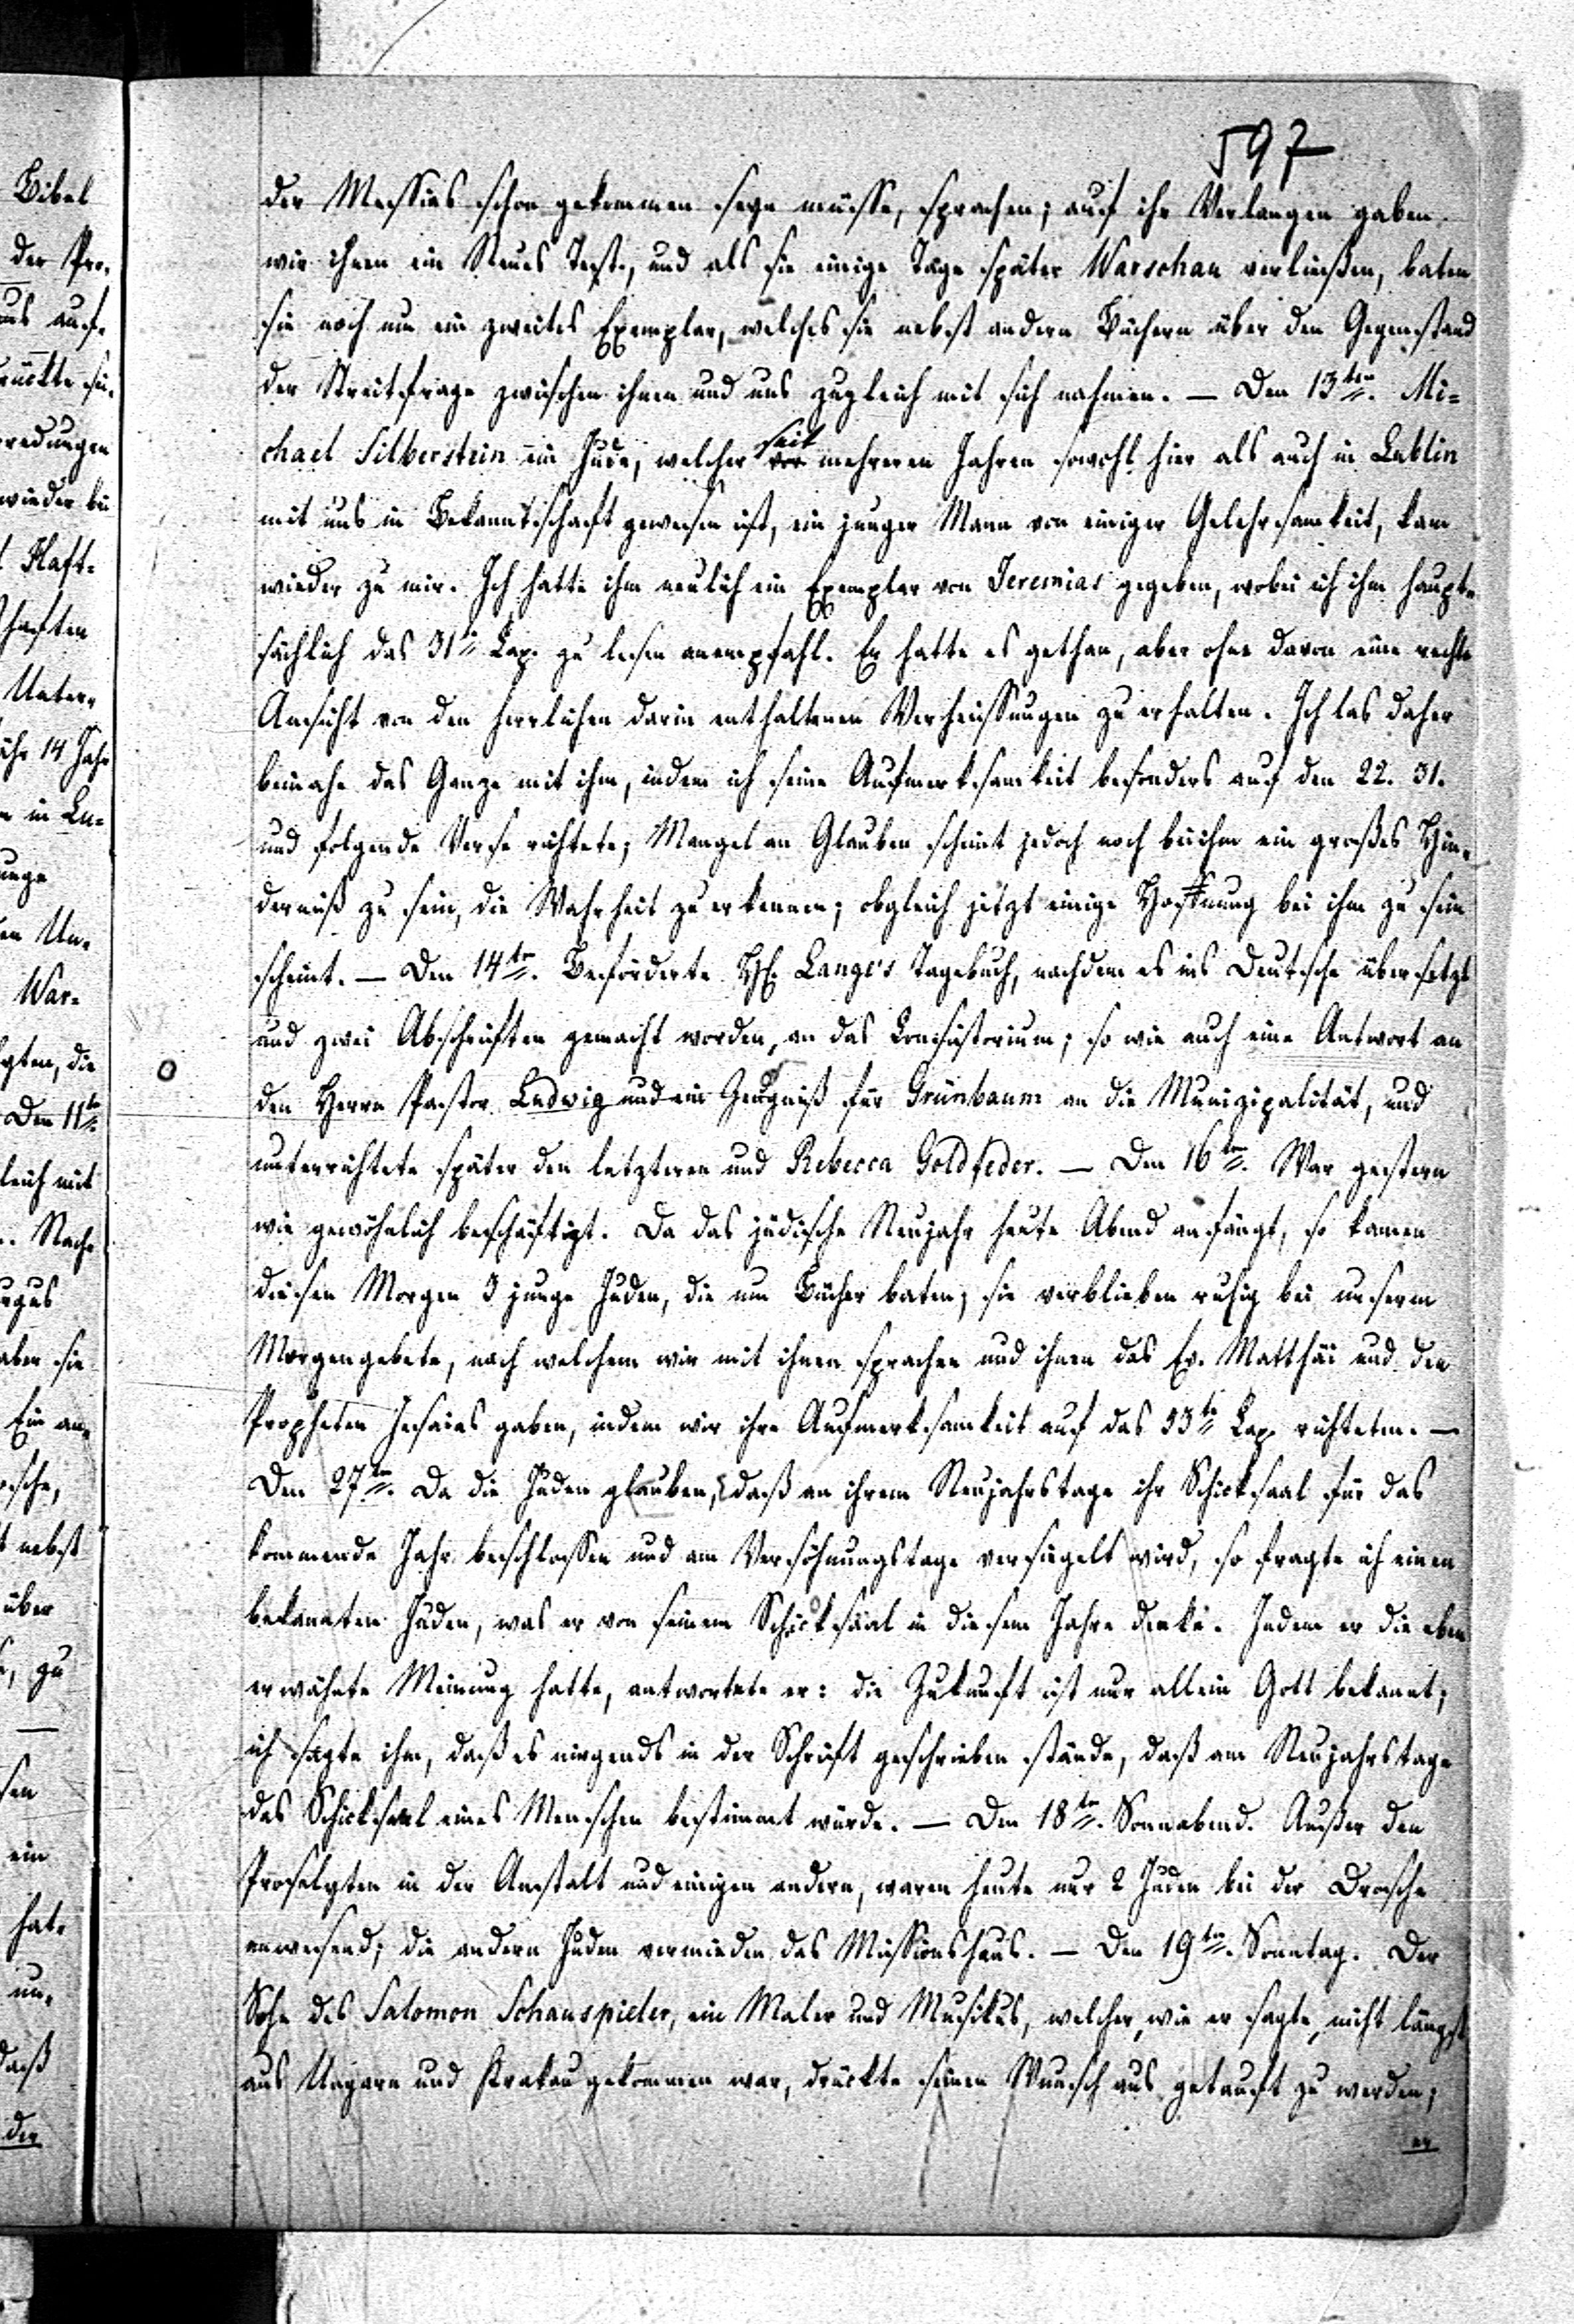 597
der Messias schon gekommen seyn müsse, sprachen; auf ihr Verlangen gaben
wir ihnen ein Neues Test., und als sie einige Tage später Warschau verließen, baten
sie noch um ein zweites Exemplar, welches sie nebst andern Büchern über den Gegenstand
der Streitfrage zwischen ihnen und uns zugleich mit sich nahmen. — Den 13ten. Mi=
chael Silberstein ein Jude, welcher seit mehreren Jahren sowohl hier als auch in Lublin
mit uns in Bekanntschaft gewesen ist, ein junger Mann von einiger Gelehrsamkeit, kam
wieder zu mir. Ich hatte ihm neulich ein Exemplar von Jeremias gegeben, wobei ich ihm haupt=
sächlich das 31te Cap. zu lesen anempfahl. Er hatte es gethan, aber ohne davon eine rechte
Ansicht von den herrlichen darin enthaltenen Verheissungen zu erhalten. Ich las daher
beinahe das Ganze mit ihm, indem ich seine Aufmerksamkeit besonders auf den 22. 31.
und folgende Verse richtete; Mangel an Glauben scheint jedoch noch bei ihm ein großes Hin=
derniß zu sein, die Wahrheit zu erkennen; obgleich jetzt einige Hoffnung bei ihm zu sein
scheint. — Den 14ten. Beförderte H. Lange's Tagebuch, nachdem es ins Deutsche übersetzt
und zwei Abschriften gemacht worden, an das Consistorium; so wie auch eine Antwort an
den Herrn Pastor Ludwig und ein Zeugniß für Grünbaum an die Munizipalität, und
unterrichtete später den letzteren und Rebecca Goldfeder. — Den 16ten. War gestern
wie gewöhnlich beschäftigt. Da das jüdische Neujahr heute Abend anfängt, so kamen
diesen Morgen 3 junge Juden, die um Bücher baten; sie verblieben ruhig bei unserm
Morgengebete, nach welchem wir mit ihnen sprachen und ihnen das Ev. Matthäi und den
Propheten Jesaias gaben, indem wir ihre Aufmerksamkeit auf das 53te Cap. richteten. —
Den 27ten. Da die Juden glauben, daß an ihrem Neujahrstage ihr Schicksaal für das
kommende Jahr beschlossen und am Versöhnungstage versiegelt wird, so fragte ich einen
bekannten Juden, was er von seinem Schicksaal in diesem Jahre denke. Indem er die eben
erwähnte Meinung hatte, antwortete er: die Zukunft ist nur allein Gott bekannt;
ich sagte ihm, daß es nirgends in der Schrift geschrieben stände, daß am Neujahrstage
das Schicksaal eines Menschen bestimmt würde. — Den 18ten. Sonnabend. Außer den
Proselyten in der Anstalt und einigen andern, waren heute nur 2 Juden bei der Drosche
anwesend; die andern Juden vermieden das Missionshaus. — Den 19ten. Sonntag. Der
Sohn des Salomon Schauspieler, ein Maler und Musikus, welcher, wie er sagte, nicht längst
aus Ungarn und Krakau gekommen war, drückte seinen Wunsch aus getauft zu werden;
er